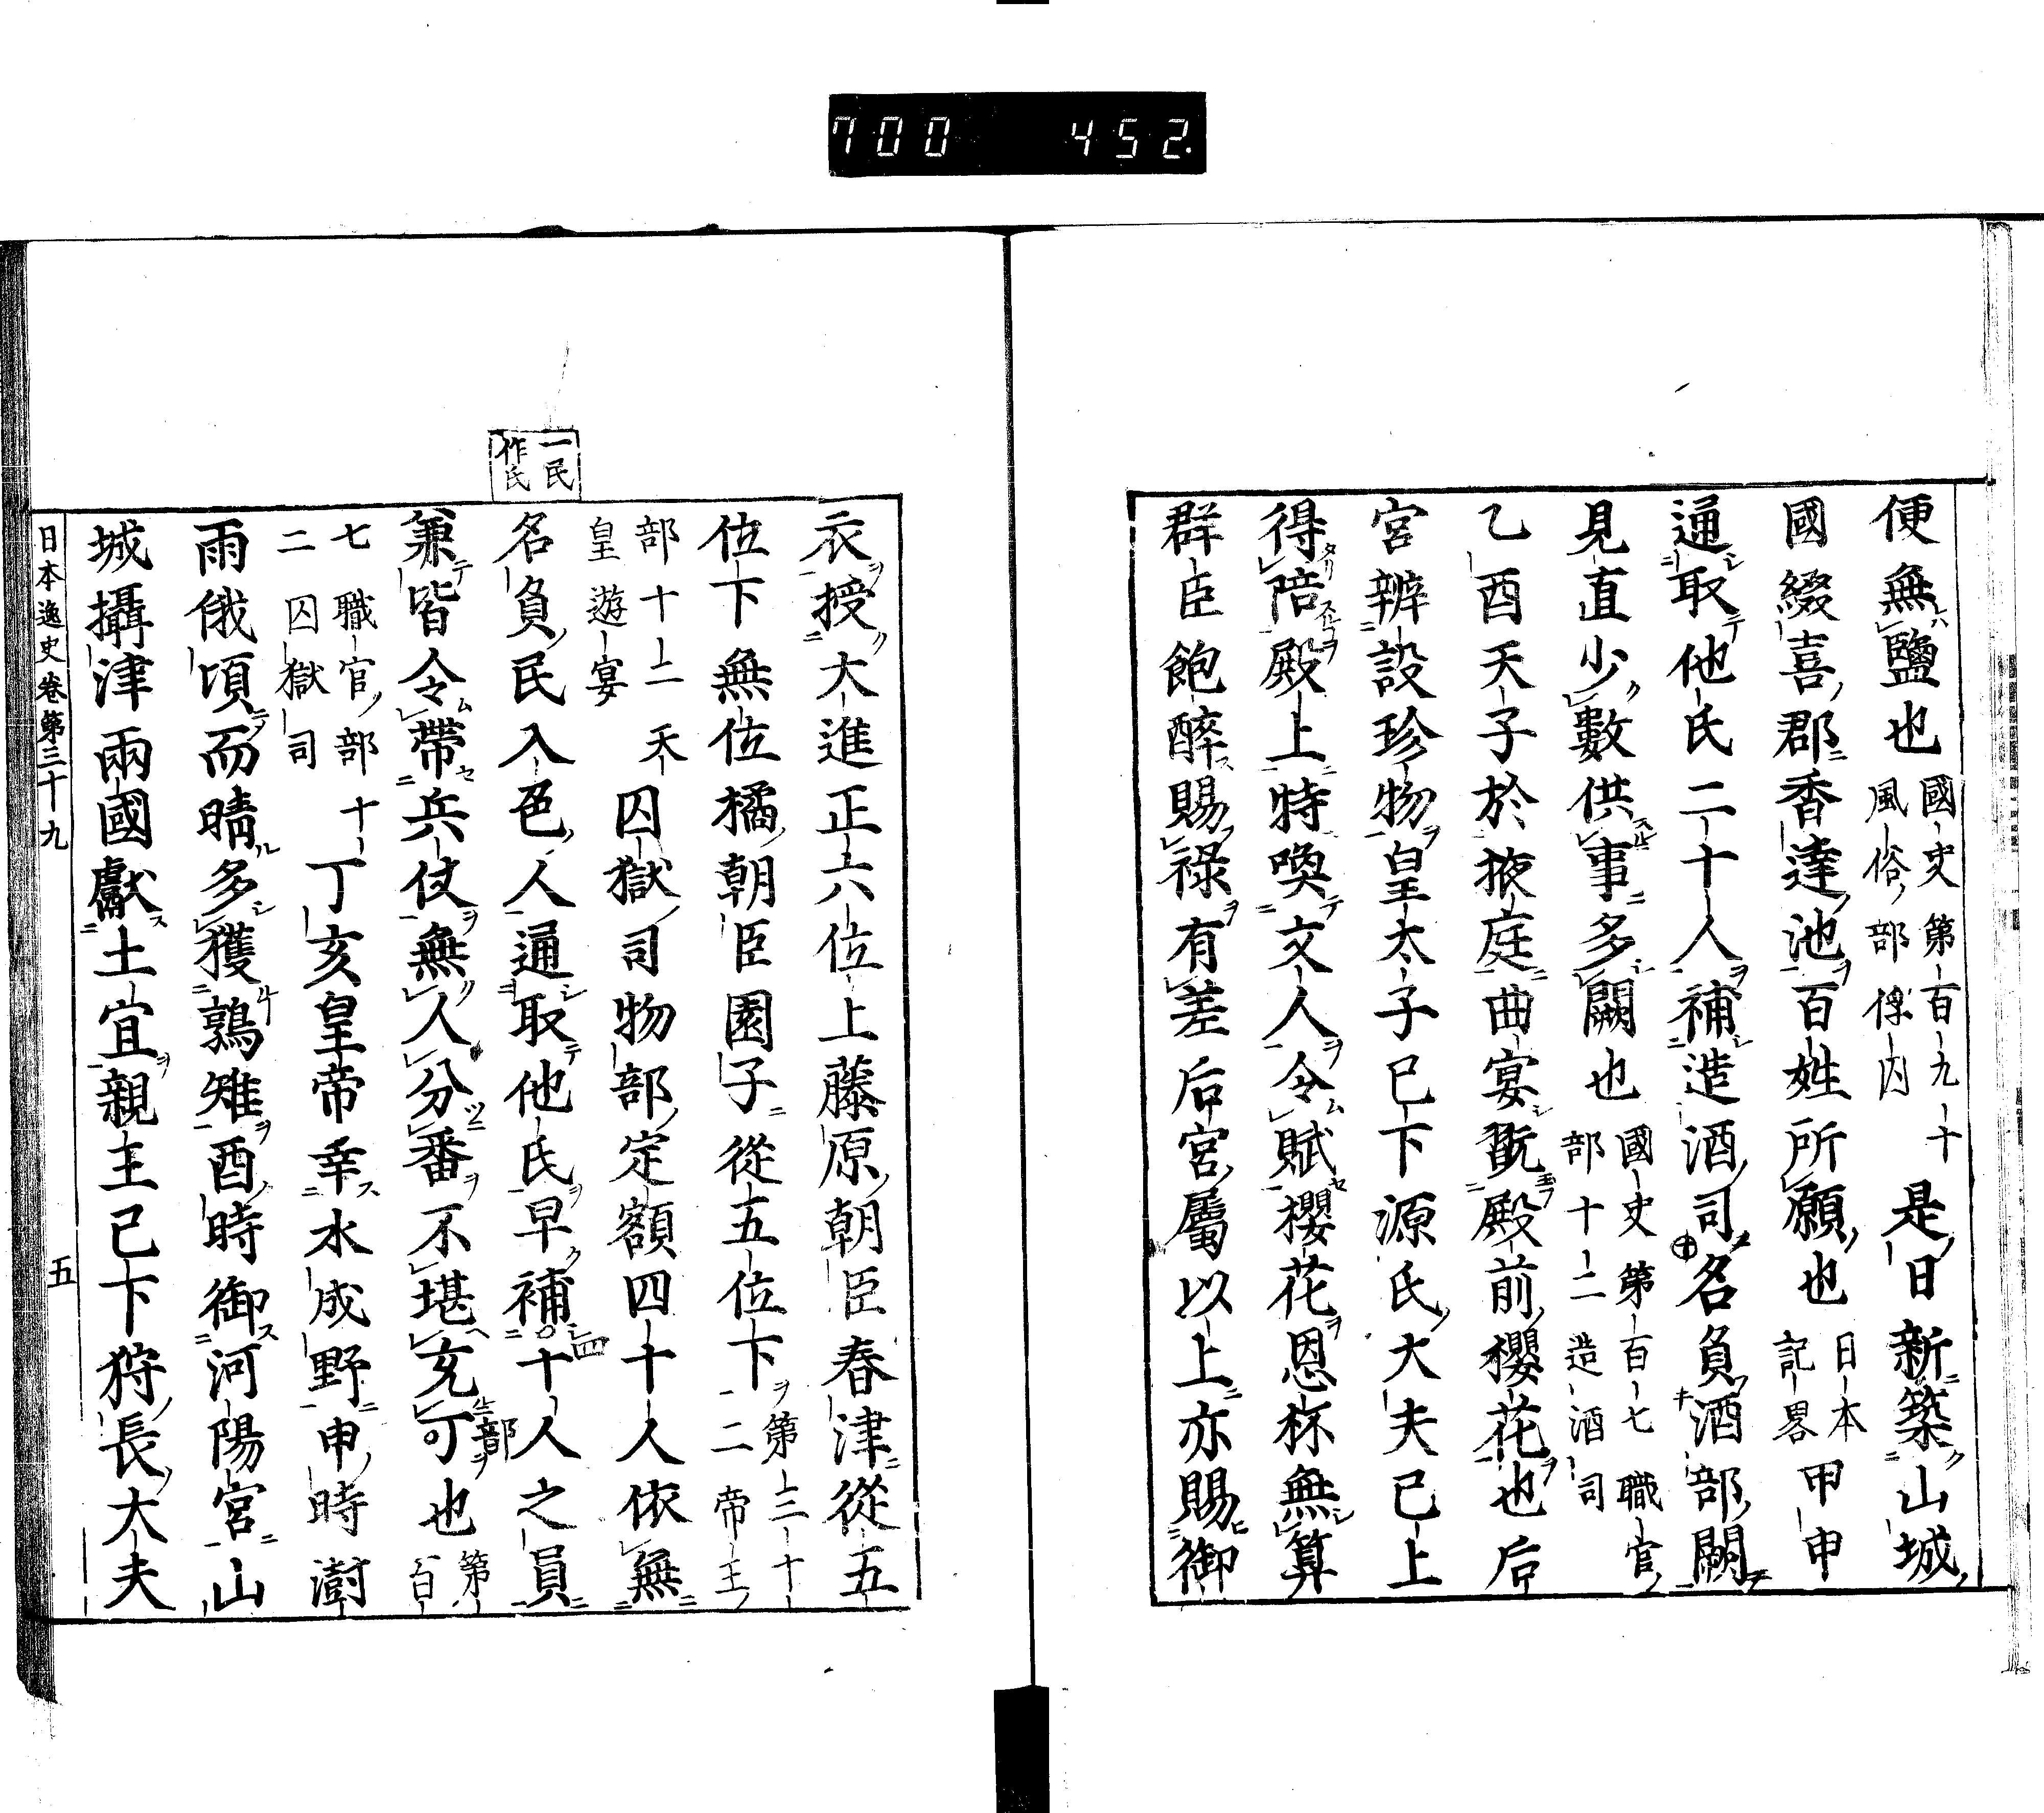 700 452.
便無鹽也國史第百九十風俗部俘囚是日新築山城
國綴喜郡香達池百姓所願也日本記畧甲申
通取他氏二十人補造酒司名負酒部闕
見直少數供事多闕也國史第百七職官部十二造酒司
乙酉天子於掖庭曲宴翫殿前櫻花也后
宮辨設珍物皇太子已下源氏大夫已上
得陪殿上特喚文人令賦櫻花恩杯無算
群臣飽醉賜祿有差后宮屬以上亦賜御
衣授大進正六位上藤原朝臣春津從五
位下無位橘朝臣園子從五位下第三十二帝王
部十二天皇遊宴囚獄司物部定額四十人依無
一民作氏
名負民入色人通取他氏早補四十人之員
兼皆令帶兵仗無人分番不堪充部可也第百
七職官部十二囚獄司丁亥皇帝幸水成野申時澍
雨俄頃而晴多獲鶉雉酉時御河陽宮山
城攝津兩國獻土宜親王已下狩長大夫
日本逸史卷第三十九 五